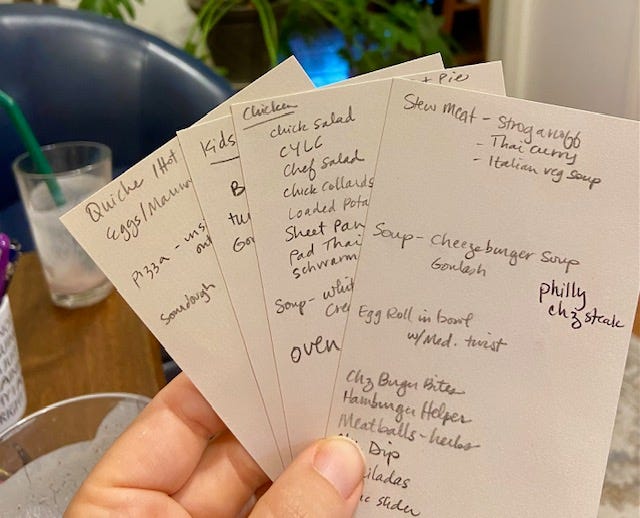 Quiche / Hot
Eggs/
Pizza -
Sourdough
Kids
B
Chicken
chick salad
CYLC
Chef Salad
chick collards
Loaded Pota
Sheet Pan
Pad Thai
Schwarm
Soup - whit
Cre
oven
+ Pie
Stew Meat - Stroganoff
- Thai curry
- Italian veg soup
Soup - Cheezeburger Soup
Goulash
philly
chz steak
Egg Roll in bowl
w/Med. twist
Chz Burger Bites
Hamburger Helper
Meatballs - herbs
Dip
iladas
slider